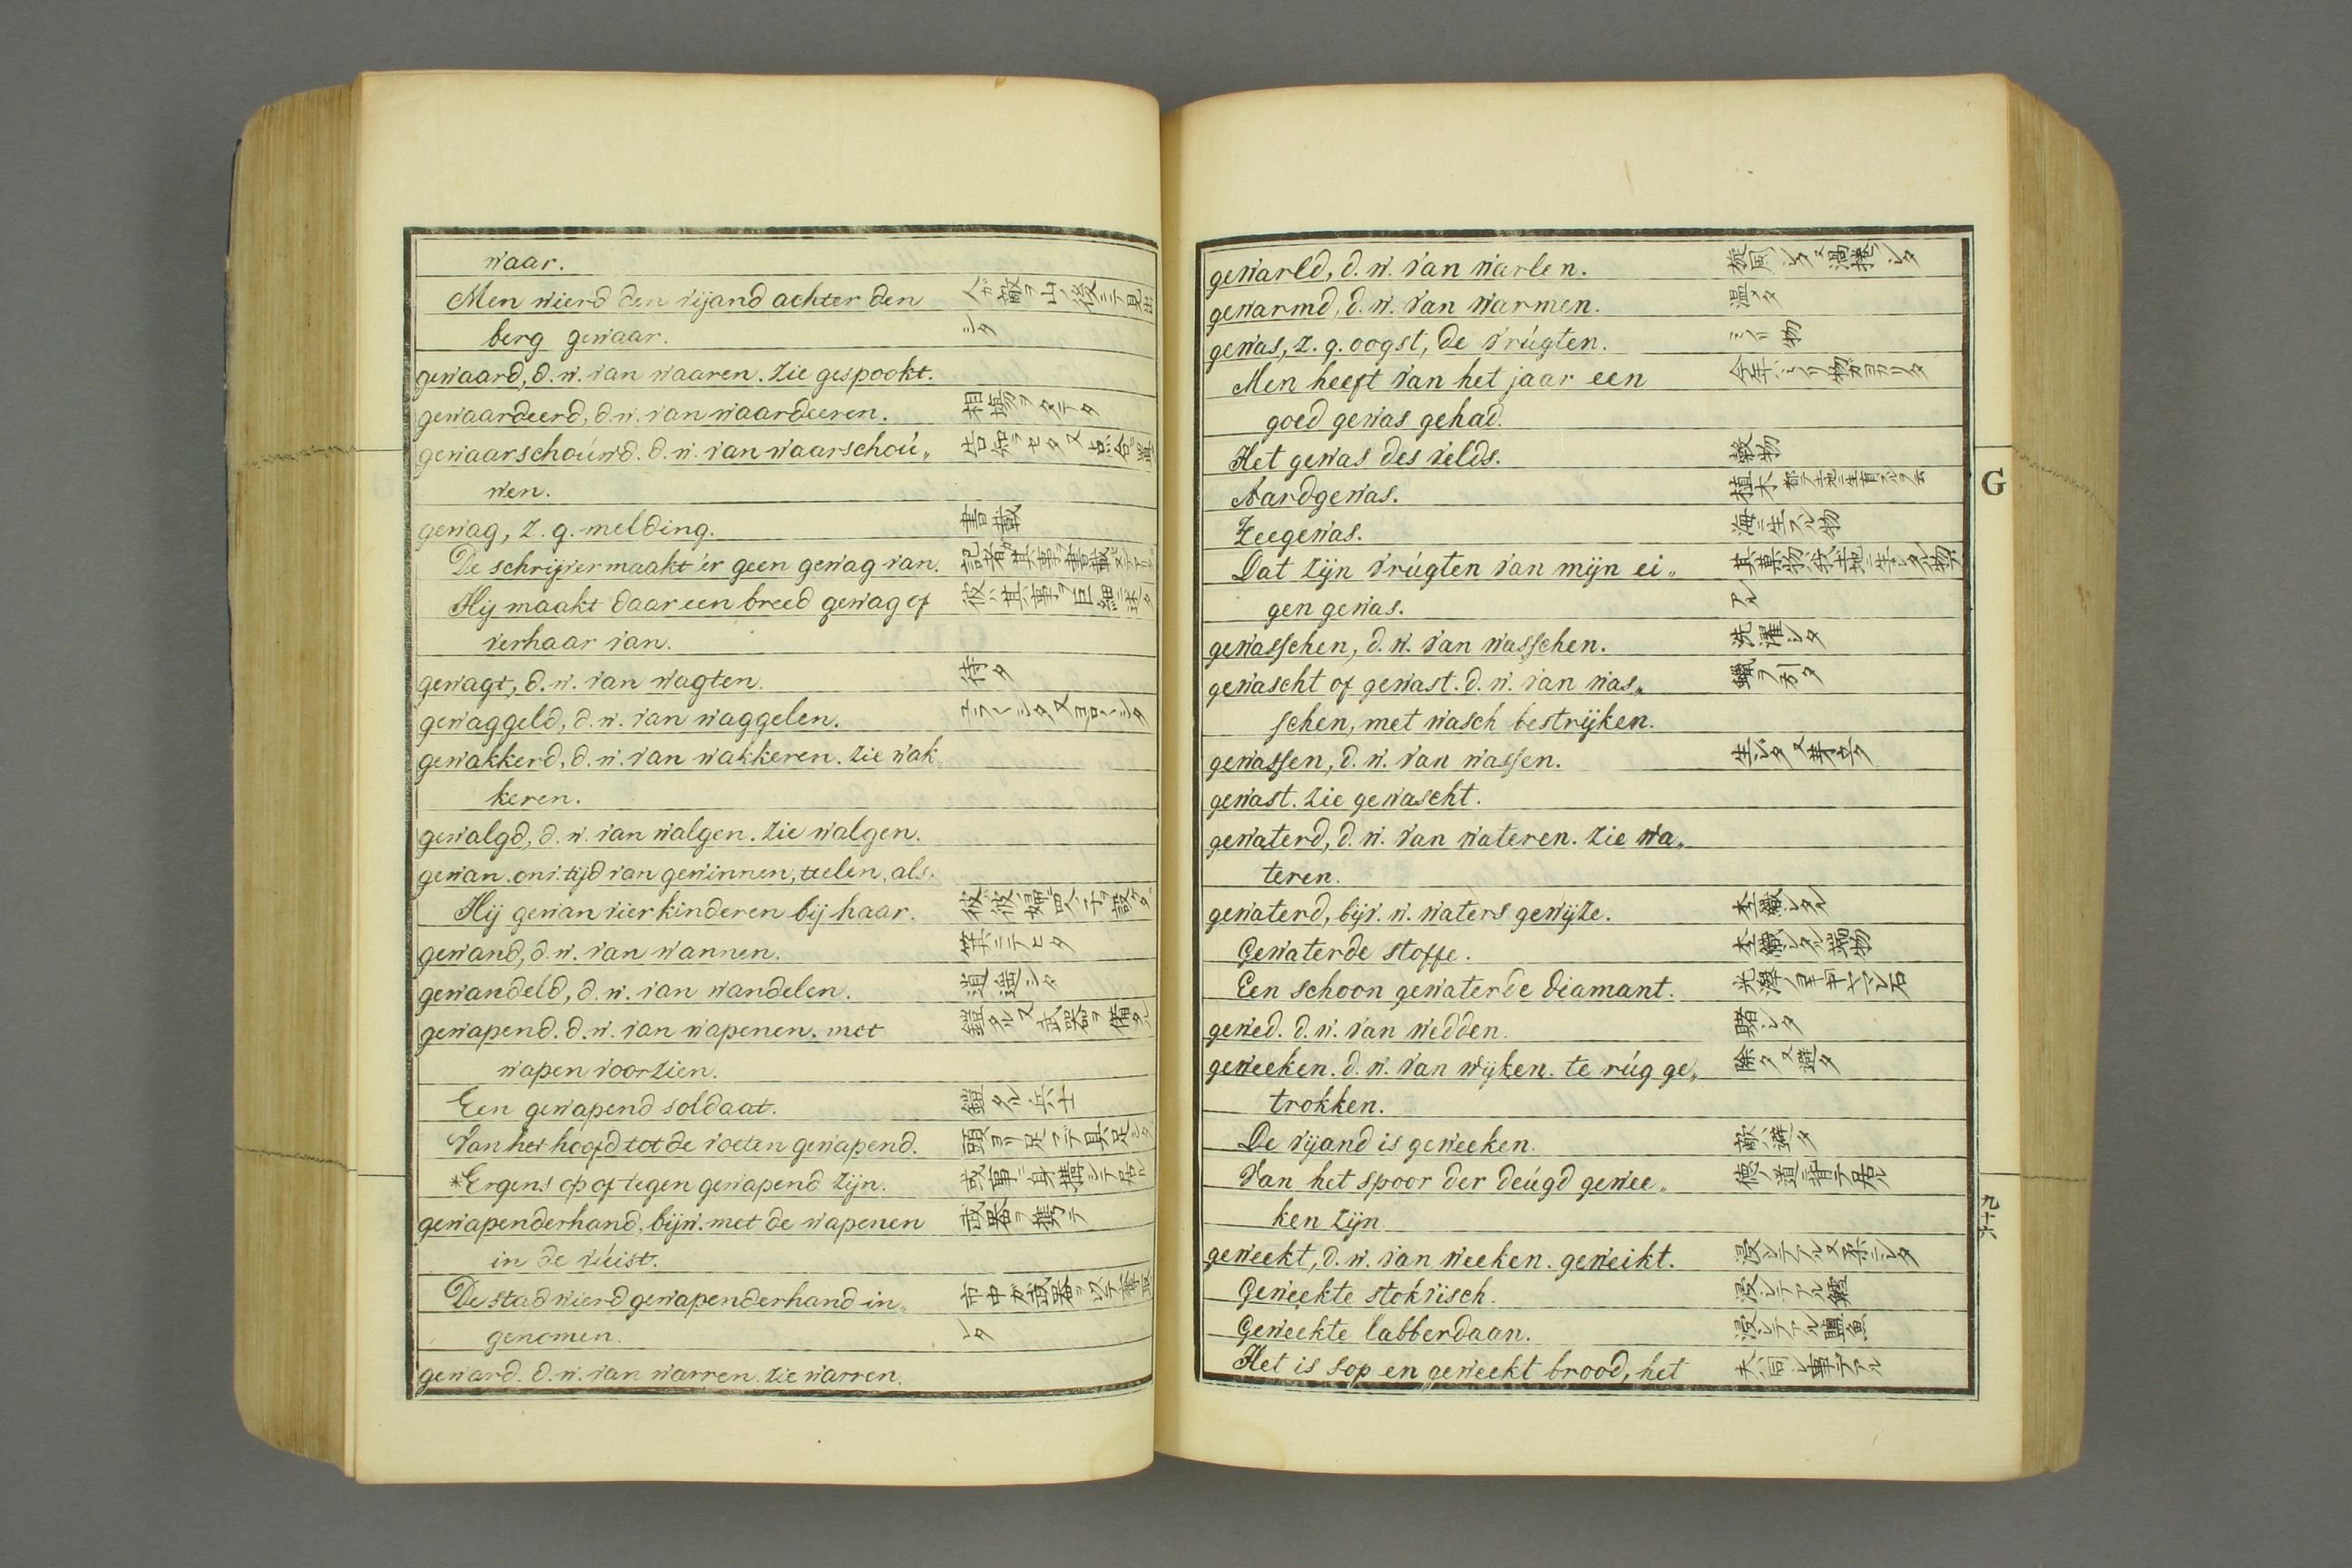 waar.
Men wierd den vijand achter den 人ガ敵ヲ山ノ後ニテ見出
berg gewaar. シタ
gewaard, d. w. van waaren. zie gespookt.
gewaardeerd, d. w. van waardeeren. 相塲ヲタテタ
gewaarschóuwd. d. w. van waarschóu„ 告知ラセタ又
wen.
gewag, z. g. melding. 書載
De schrijver maakt'er geen gewag van. 記者ガ其事ヲ書載
Hij maakt daar een breed gewag of 彼ハ其事ヲ巨細ニ述タ
verhaar van.
gewagt, d. w. van wagten. 待タ
gewaggeld, d. w. van waggelen.
gewakkerd, d. w. van wakkeren. zie wak„
keren.
gewalgd, d. w. van walgen. zie walgen.
gewan. onv. tijd van gewinnen, teelen, als.
Hij gewan vier kinderen bij haar.
gewand, d. w. van wannen. 箕ニテヒタ
gewandeld, d. w. van wandelen. 逍遥シタ
gewapend. d. w. van wapenen. met 鎧タル又武器ヲ備タル
wapen voorzien.
Een gewapend soldaat. 鎧タル兵士
Van het hoofd tot de voeten gewapend. 頭ヨリ足マデ具足シタ
*Ergens op of tegen gewapend zijn. 或事ニ身構シテ居ル
gewapenderhand, bijw. met de wapenen 武器ヲ携テ
in de vúist.
De stad wierd gewapenderhand in„ 市中ガ武器ヲ以テ奪取
genomen. シタ
geward. d. w. van warren. zie warren.
gewarld, d. w. van warlen. 旋風シタ又渦捲シタ
gewarmd, d. w. van warmen. 温メタ
gewas, z. g. oogst, de vrúgten. ミノリ物
Men heeft van het jaar een 今年ハミノリ物ガヨカリタ
goed gewas gehad.
Het gewas des velds. 穀物
Aardgewas. 植木
Zeegewas. 海ニ生スル物
Dat zijn vrúgten van mijn ei„ 其菓物ハ我土地ニ生シタ物デ
gen gewas. アル
gewasschen, d. w. van wasschen. 洗濯シタ
gewascht of gewast. d. w. van was„ 蠟ヲ引タ
schen, met wasch bestrijken.
gewassen, d. w. van wassen.
gewast. zie gewascht.
gewaterd, d. w. van wateren. zie wa„
teren.
gewaterd, bijv. w. waters gewijze. 杢織シタル
Gewaterde stoffe. 杢織シタル端物
Een schoon gewaterde diamant.
gewed. d. w. van wedden. 賭シタ
geweeken. d. w. van wijken. te rúg ge„ 除タ又避タ
trokken.
De vijand is geweeken. 敵ハ避タ
Van het spoor der deúgd gewee„ 徳ノ道ニ背テ居ル
ken zijn
geweekt, d. w. van weeken. geweikt. 浸シテアル又柔ニシタ
Geweekte stokvisch. 浸シテアル鱈
Geweekte labberdaan. 浸シテアル鹽魚
Het is sop en geweekt brood, het 夫ハ同シ事デアル
G
九十六